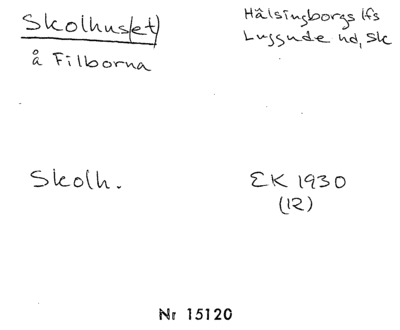 Skolhus(et)
å Filborna
Hälsingborgs lfs
Luggude hd, Sk
Skolh.
EK 1930
(12)
Nr 15120